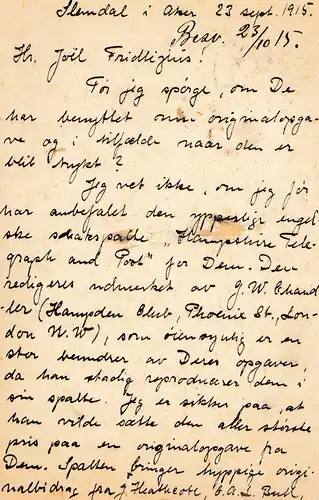 Slemdal i Aker 23 sept. 1915.
Besv. 23/10 15.
Hr. Joël Fridlizius!
Tör jeg spörge, om De
har benyttet min originalopga-
ve og i tilfælde naar den er
blit trykt?
Jeg vet ikke, om jeg för
har anbefalet den ypperlige engel-
ske schakspalte "Hampshire Tele-
graph and Post" for Dem. Den
redigeres utmerket av G. W. Chand-
ler (Hampden Club, Phoenix St., Lon-
don N.W), som öiensynlig er en
stor beundrer av Deres opgaver,
da han stadig reproducerer dem i
sin spalte. Jeg er sikker paa, at
han vilde sætte den aller största
pris paa en originalopgave fra
Dem. Spalten bringer hyppige origi-
nalbidrag fra J. Heathcote, C.A.L. Bull,